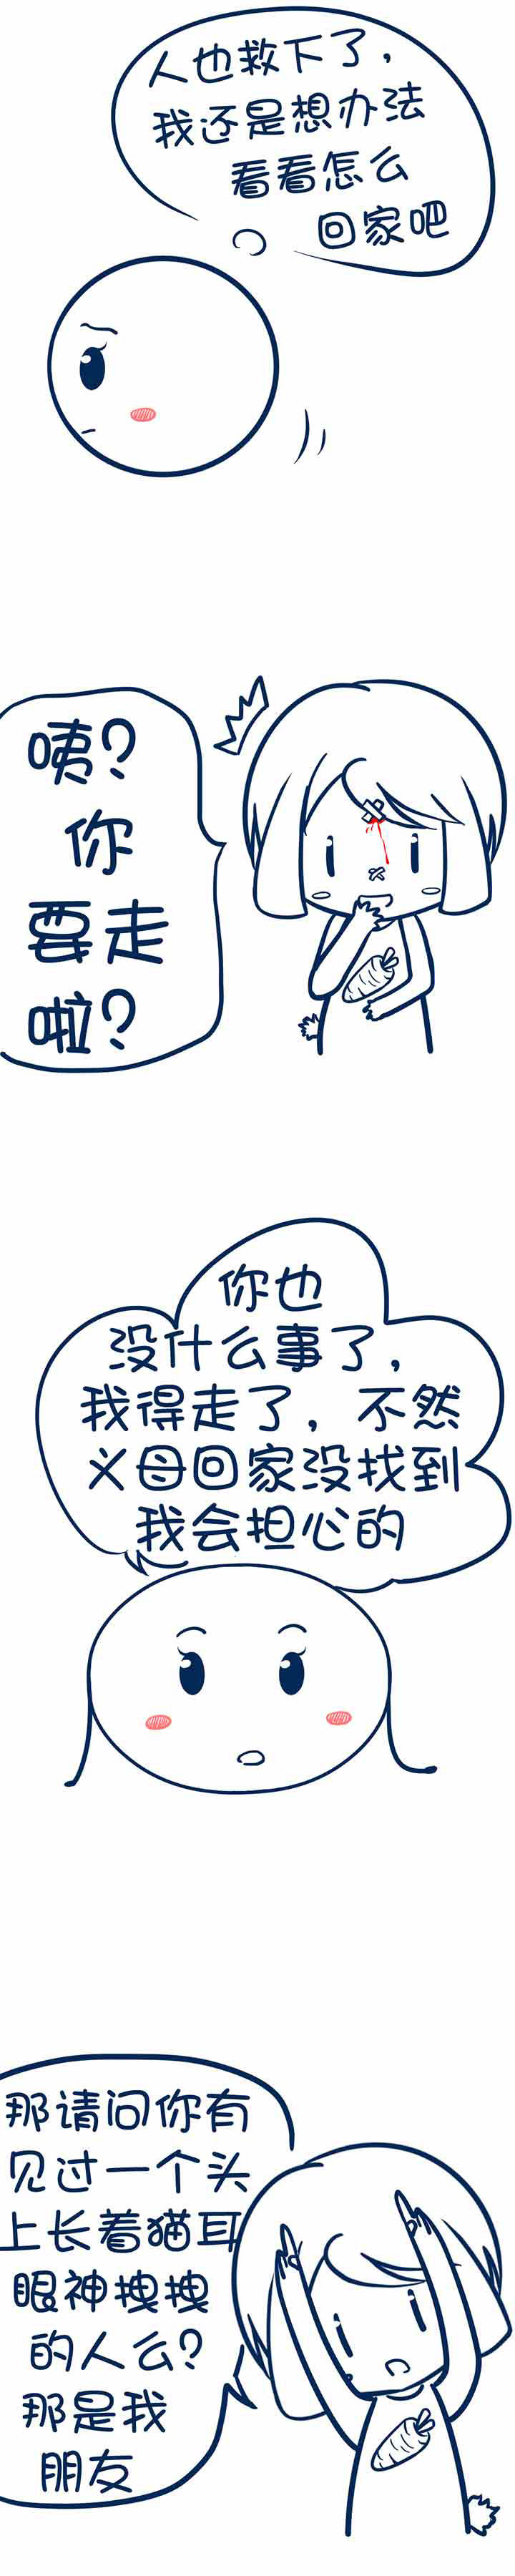 人也救下了，
我还是想办法
看看怎么
回家吧
咦？
你
要走
啦？
你也
没什么事了，
我得走了，不然
义母回家没找到
我会担心的
那请问你有
见过一个头
上长着猫耳
眼神拽拽
的人么？
那是我
朋友